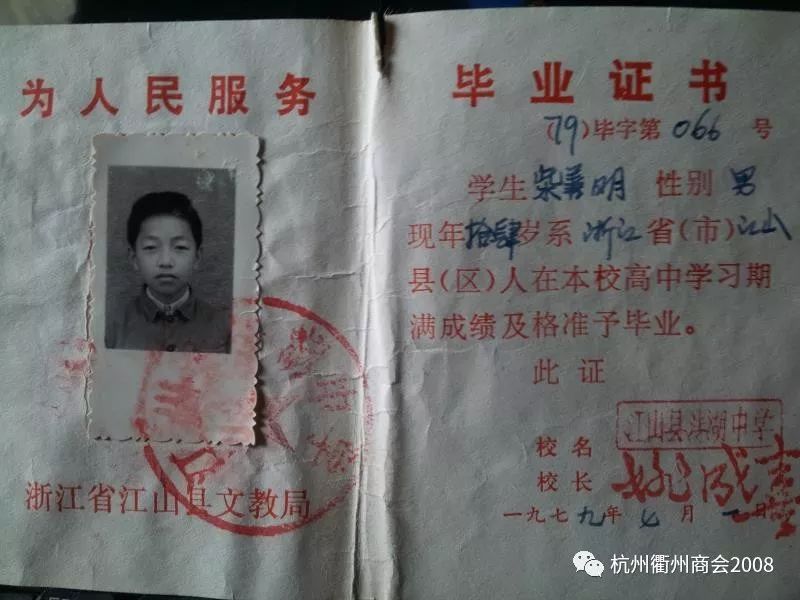 为人民服务
浙江省江山县文教局
毕业证书
(79)毕字第 066 号
学生 柴善明 性别 男
现年拾肆岁系 浙江省(市)江山
县(区)人在本校高中学习期
满成绩及格准予毕业。
此证
校名 江山县洪湖中学
校长 姚成
一九七九年七月一日
杭州衢州商会2008